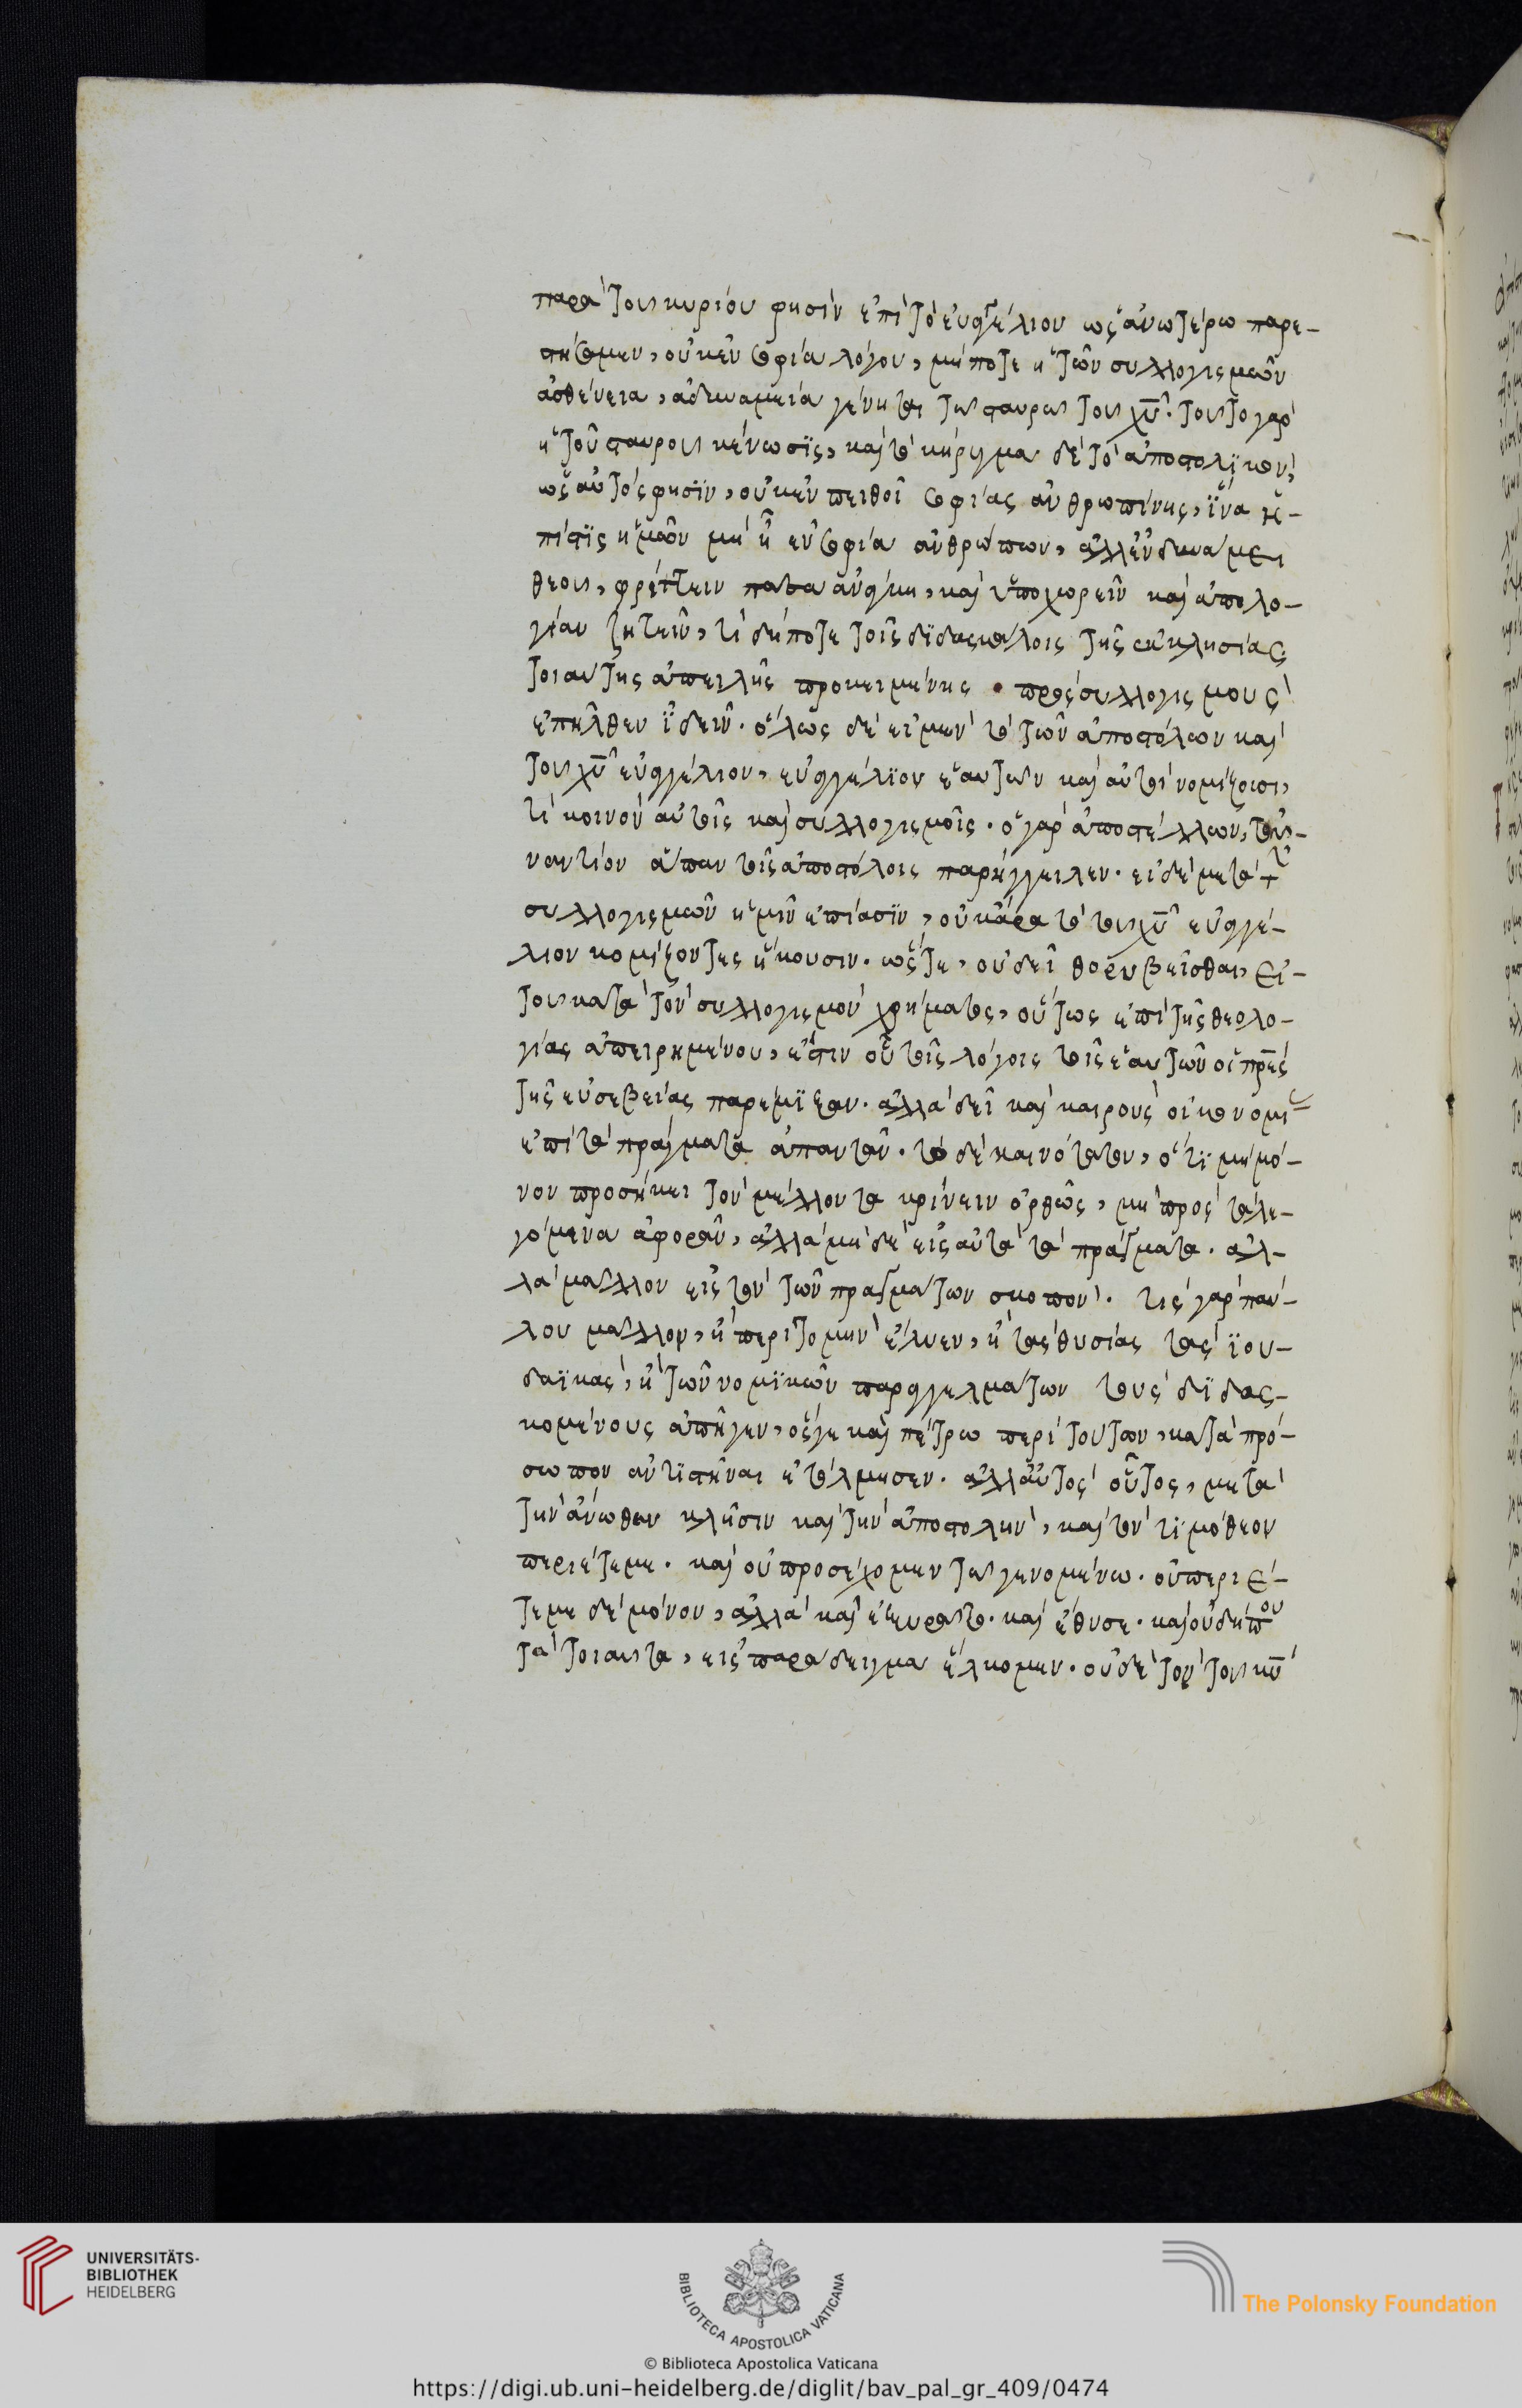 παρὰ τοῦ κυρίου φησὶν ἐπὶ τὸ εὐαγγέλιον ὡς ἀνωτέρω παρε-
στήσαμεν, οὐκ ἐν σοφία λόγου, μήποτε ἡ τῶν συλλογισμῶν
ἀσθένεια, ἀδυναμία γένηται τῶ σταυρῶ τοῦ χῦ. τοῦτο γὰρ
ἡ τοῦ σταυροῦ κένωσϊς, καὶ τὸ κήρυγμα δὲ τὸ ἀποστολϊκὸν,
ὡς αὐτὸς φησϊν, οὐκ ἐν πειθοῖ σοφίας ἀνθρωπίνης, ἵνα ἡ
πίστϊς ἡμῶν μὴ ἦ ἐν σοφία ἀνθρώπων, ἀλλ' ἐν δυνάμει
θεοῦ, φρίττειν πᾶσα ἀνάγκη, καὶ ὑποχωρεῖν καὶ ἀπολο-
γίαν ζητεῖν, τί δήποτε τοῖς δϊδασκάλοις τῆς ἐκκλησίας
τοιαύτης ἀπειλῆς προκειμένης. πρὸς συλλογισμοὺς
ἐπῆλθεν ἰδεῖν. ὅλως δὲ εἰ μὲν τὸ τῶν ἀποστόλων καὶ
τοῦ χῦ εὐαγγέλιον, εὐαγγέλϊον ἑαυτῶν καὶ αὐτοὶ νομίζουσι,
τί κοινὸν αὐτοῖς καὶ συλλογισμοῖς. ὁ γὰρ ἀποστέλλων, τοὐ-
ναντίον ἅπαν τοῖς ἀποστόλοις παρήγγειλεν. εἰ δὲ μετὰ τ
συλλογισμῶν ἡμῖν ἐπίασϊν, οὐκ ἄρα τὸ τοῦ χῦ εὐαγγέ-
λιον κομίζοντες ἥκουσιν. ὥστε, οὐ δεῖ θορυβεῖσθαι, εἰ
τοῦ κατὰ τὸν συλλογισμὸν χρήματος, οὕτως ἐπὶ τῆς θεολο-
γίας ἀπειρημένου, ἔστιν οὗ τοῖς λόγοις τοῖς ἑαυτῶν οἱ πρ̅ες
τῆς εὐσεβείας παρέμϊξαν. ἀλλὰ δεῖ καὶ καιροὺς οἰκονομι
ἐπὶ τὰ πράγματα ἀπαντᾶν. τὸ δὲ καινότατον, ὅτϊ μὴ μό-
νον προσήκει τὸν μέλλοντα κρίνειν ὀρθῶς, μὴ πρὸς τὰ λε-
γόμενα ἀφορᾶν, ἀλλὰ μὴ δὲ εἰς αὐτὰ τὰ πράγματα. ἀλ-
λὰ μᾶλλον εἰς τὸν τῶν πραγμάτων σκοπόν. τίς γὰρ παύ-
λου μᾶλλον, ἢ περιτομὴν ἔλυεν, ἢ τὰς θυσίας τὰς ϊου-
δαϊκὰς, ἢ τῶν νομϊκῶν παραγγελμάτων τοὺς δϊδασ-
κομένους ἀπῆγεν, ὅς γε καὶ πέτρω περὶ τούτων, κατὰ πρό-
σωπον ἀντϊστῆναι ἐτόλμησεν. ἀλλ' αὐτὸς οὗτος, μετὰ
τὴν ἄνωθεν κλῆσιν καὶ τὴν ἀποστολὴν, καὶ τὸν τϊμόθεον
περιέτεμε. καὶ οὐ προσέχομεν τῶ γενομένω. οὐ περιέ-
τεμε δὲ μόνον, ἀλλὰ καὶ ἐξυρᾶτο. καὶ ἔθυσε. καὶ οὐδέπου
τὰ τοιαῦτα, εἰς παράδειγμα ἕλκομεν. οὐδὲ τὸν τοῦ κῦ
UNIVERSITÄTS-
BIBLIOTHEK
HEIDELBERG
BIBLIOTECA APOSTOLICA VATICANA
The Polonsky Foundation
© Biblioteca Apostolica Vaticana
https://digi.ub.uni-heidelberg.de/diglit/bav_pal_gr_409/0474